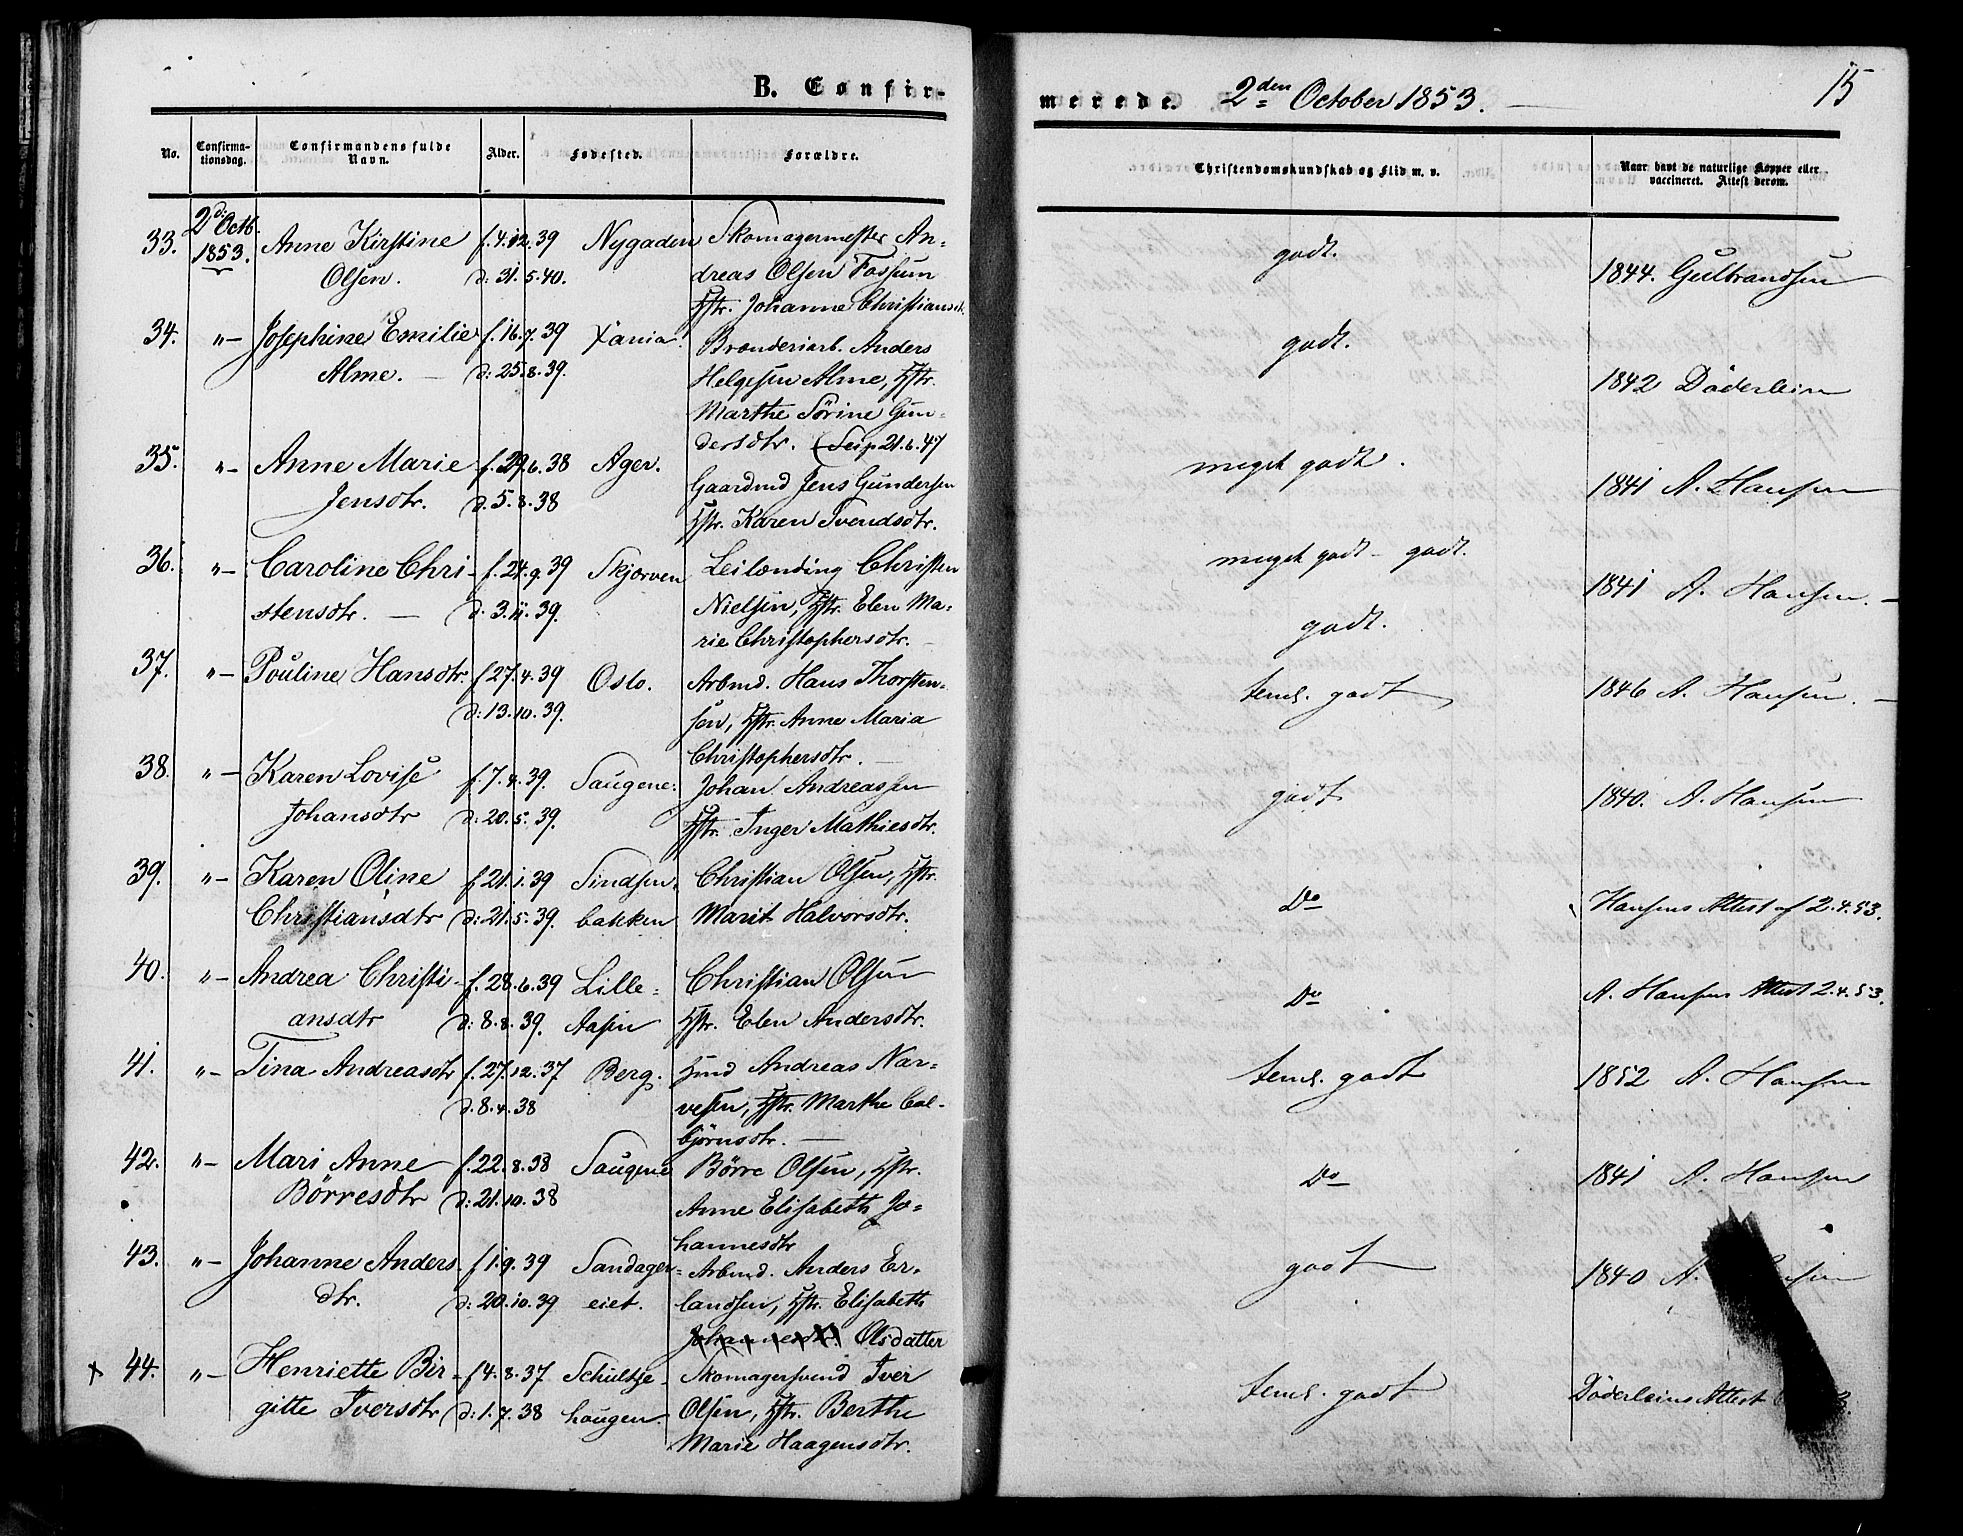 B. Confir-
merede. 2den October 1853.
15
No. Confirmationsdag. Confirmandens fulde Navn. Alder. Fødested. Forældre.
Christendomskundskab og Flid m. v. Naar havt de naturlige Kopper eller vaccineret. Attest derom.
33. 2d Octb. 1853. Anne Kirstine f. 4.12.39 Nygaden Skomagermester An-
Olsen. d: 31.5.40. dreas Olsen Fossum
Hstr. Johanne Christiansd.
godt. 1844. Gulbrandsen
34. "- Josephine Emilie f. 16.7.39 Xania. Brænderiarb. Anders
Alme. d: 25.8.39. Helgesen Alme, Hstr.
Marthe Sørine Gun-
dersdtr. 21.6.47
godt. 1842 Döderlein
35. "- Anne Marie f. 29.6.38 Ager. Gaardmd Jens Gundersen
Jensdtr. d. 5.8.38 Hstr. Karen Svendsdtr.
meget godt. 1841 A. Hansen
36. "- Caroline Chri- f. 24.9.39 Skjerven Leilænding Christen
stensdtr. d. 3.11.39. Nielsen, Hstr. Elen Ma-
rie Christophersdtr.
meget godt - godt. 1841 A. Hansen.
godt.
37. "- Pouline Hansdtr. f 27.4.39 Oslo. Arbmd. Hans Thorsten-
d: 13.10.39. sen, Hstr. Anne Maria
Christophersdtr.
teml. godt 1846 A. Hansen.
38. "- Karen Lovise f. 7.4.39. Saugene. Johan Andreassen
Johansdtr d: 20.5.39. Hstr. Inger Mathiesdtr.
godt 1840. A. Hansen
39. "- Karen Oline f 21.1.39 Sindsen- Christian Olsen, Hstr.
Christiansdtr d: 21.5.39. bakken Marit Halvorsdtr.
Do Hansens Attest af 2.4.53.
40. "- Andrea Christi- f. 28.6.39 Lille- Christian Olsen
ansdtr d: 8.8.39. Aasen Hstr. Elen Andersdtr.
Do A. Hansens Attest 2.4.53.
41. "- Tina Andreasdtr f. 27.12.37 Berg. Hmd Andreas Nar-
d. 8.4.38 vesen, Hstr. Marthe Col-
björnsdtr.
teml. godt 1852 A. Hansen
42. "- Mari Anne f. 22.8.38 Saugene Börre Olsen, Hstr.
Börresdtr d: 21.10.38 Anne Elisabeth Jo-
hannesdtr
Do 1841 A. Hansen
43. "- Johanne Anders f 1.9.39 Sandager- Arbmd. Anders Er-
dtr. d: 20.10.39 eiet. landsen, Hstr. Elisabeth
Johannesdtr. Olsdatter
godt 1840 A.
x 44. "- Henriette Bir- f 4.8.37 Schultze- Skomagersvend Iver
gitte Iversdtr d: 1.7.38 haugen. Olsen, Hstr. Berthe
Marie Haagensdtr.
teml. godt Döderleins Attest